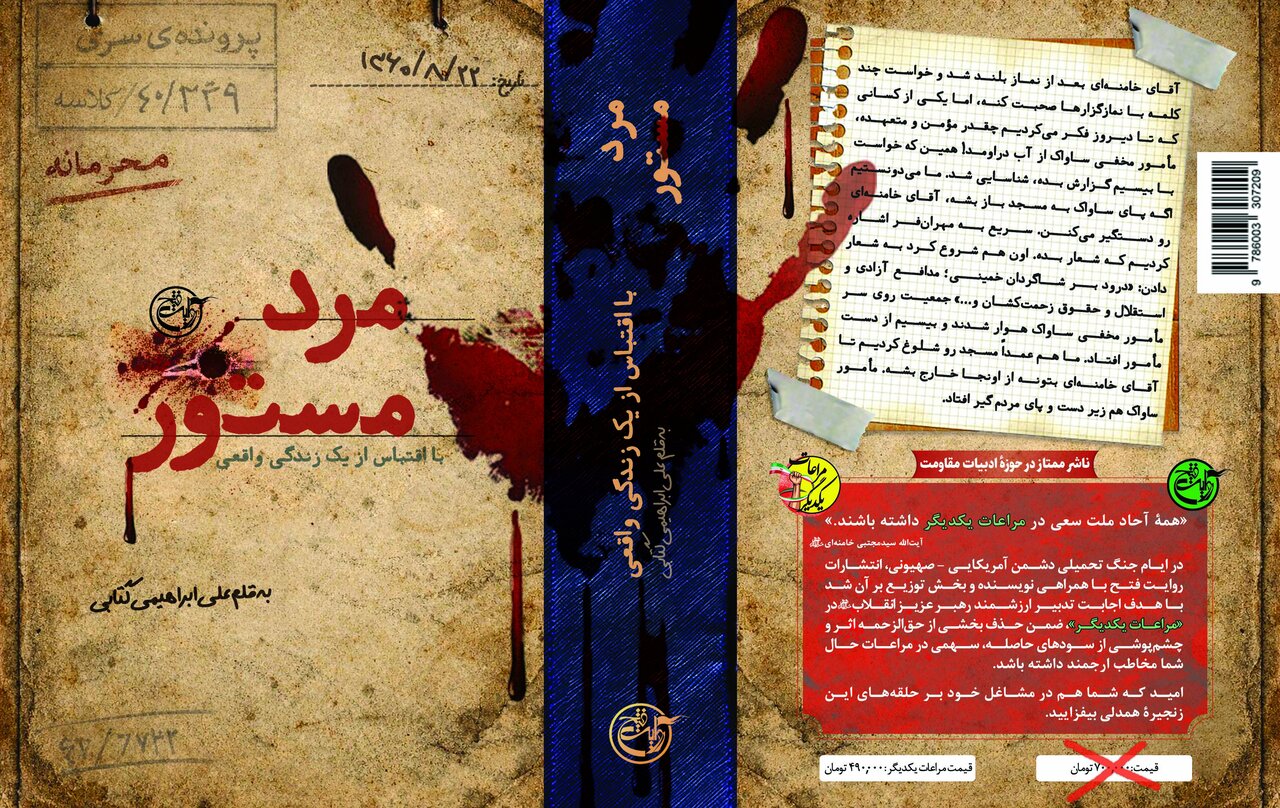 پرونده‌ی سری
۶۰/۳۴۹/ کلاسه
تاریخ: ۱۳۶۰/۸/۲۲
محرمانه
مرد
مستور
با اقتباس از یک زندگی واقعی
به قلم علی ابراهیمی کتابی
مرد
مستور
با اقتباس از یک زندگی واقعی
به قلم علی ابراهیمی کتابی
آقای خامنه‌ای بعد از نماز بلند شد و خواست چند
کلمه با نمازگزارها صحبت کنه، اما یکی از کسانی
که تا دیروز فکر می‌کردیم چقدر مؤمن و متعهده،
مأمور مخفی ساواک از آب دراومد! همین که خواست
با بیسیم گزارش بده، شناسایی شد. ما می‌دونستیم
اگه پای ساواک به مسجد باز بشه، آقای خامنه‌ای
رو دستگیر می‌کنن. سریع به مهران‌فر اشاره
کردیم که شعار بده. اون هم شروع کرد به شعار
دادن: «درود بر شاگردان خمینی؛ مدافع آزادی و
استقلال و حقوق زحمت‌کشان و...» جمعیت روی سر
مأمور مخفی ساواک هوار شدند و بیسیم از دست
مأمور افتاد. ما هم عمداً مسجد رو شلوغ کردیم تا
آقای خامنه‌ای بتونه از اونجا خارج بشه. مأمور
ساواک هم زیر دست و پای مردم گیر افتاد.
9 786003 307209
ناشر ممتاز در حوزهٔ ادبیات مقاومت
مراعات
یکدیگر
«همهٔ آحاد ملت سعی در مراعات یکدیگر داشته باشند.»
آیت‌الله سیدمجتبی خامنه‌ای
در ایام جنگ تحمیلی دشمن آمریکایی - صهیونی، انتشارات
روایت فتح با همراهی نویسنده و بخش توزیع بر آن شد
با هدف اجابت تدبیر ارزشمند رهبر عزیز انقلاب در
«مراعات یکدیگر»، ضمن حذف بخشی از حق‌الزحمه اثر و
چشم‌پوشی از سودهای حاصله، سهمی در مراعات حال
شما مخاطب ارجمند داشته باشد.
امید که شما هم در مشاغل خود بر حلقه‌های این
زنجیرهٔ همدلی بیفزایید.
قیمت: ۷۰۰,۰۰۰ تومان
قیمت مراعات یکدیگر: ۴۹۰,۰۰۰ تومان